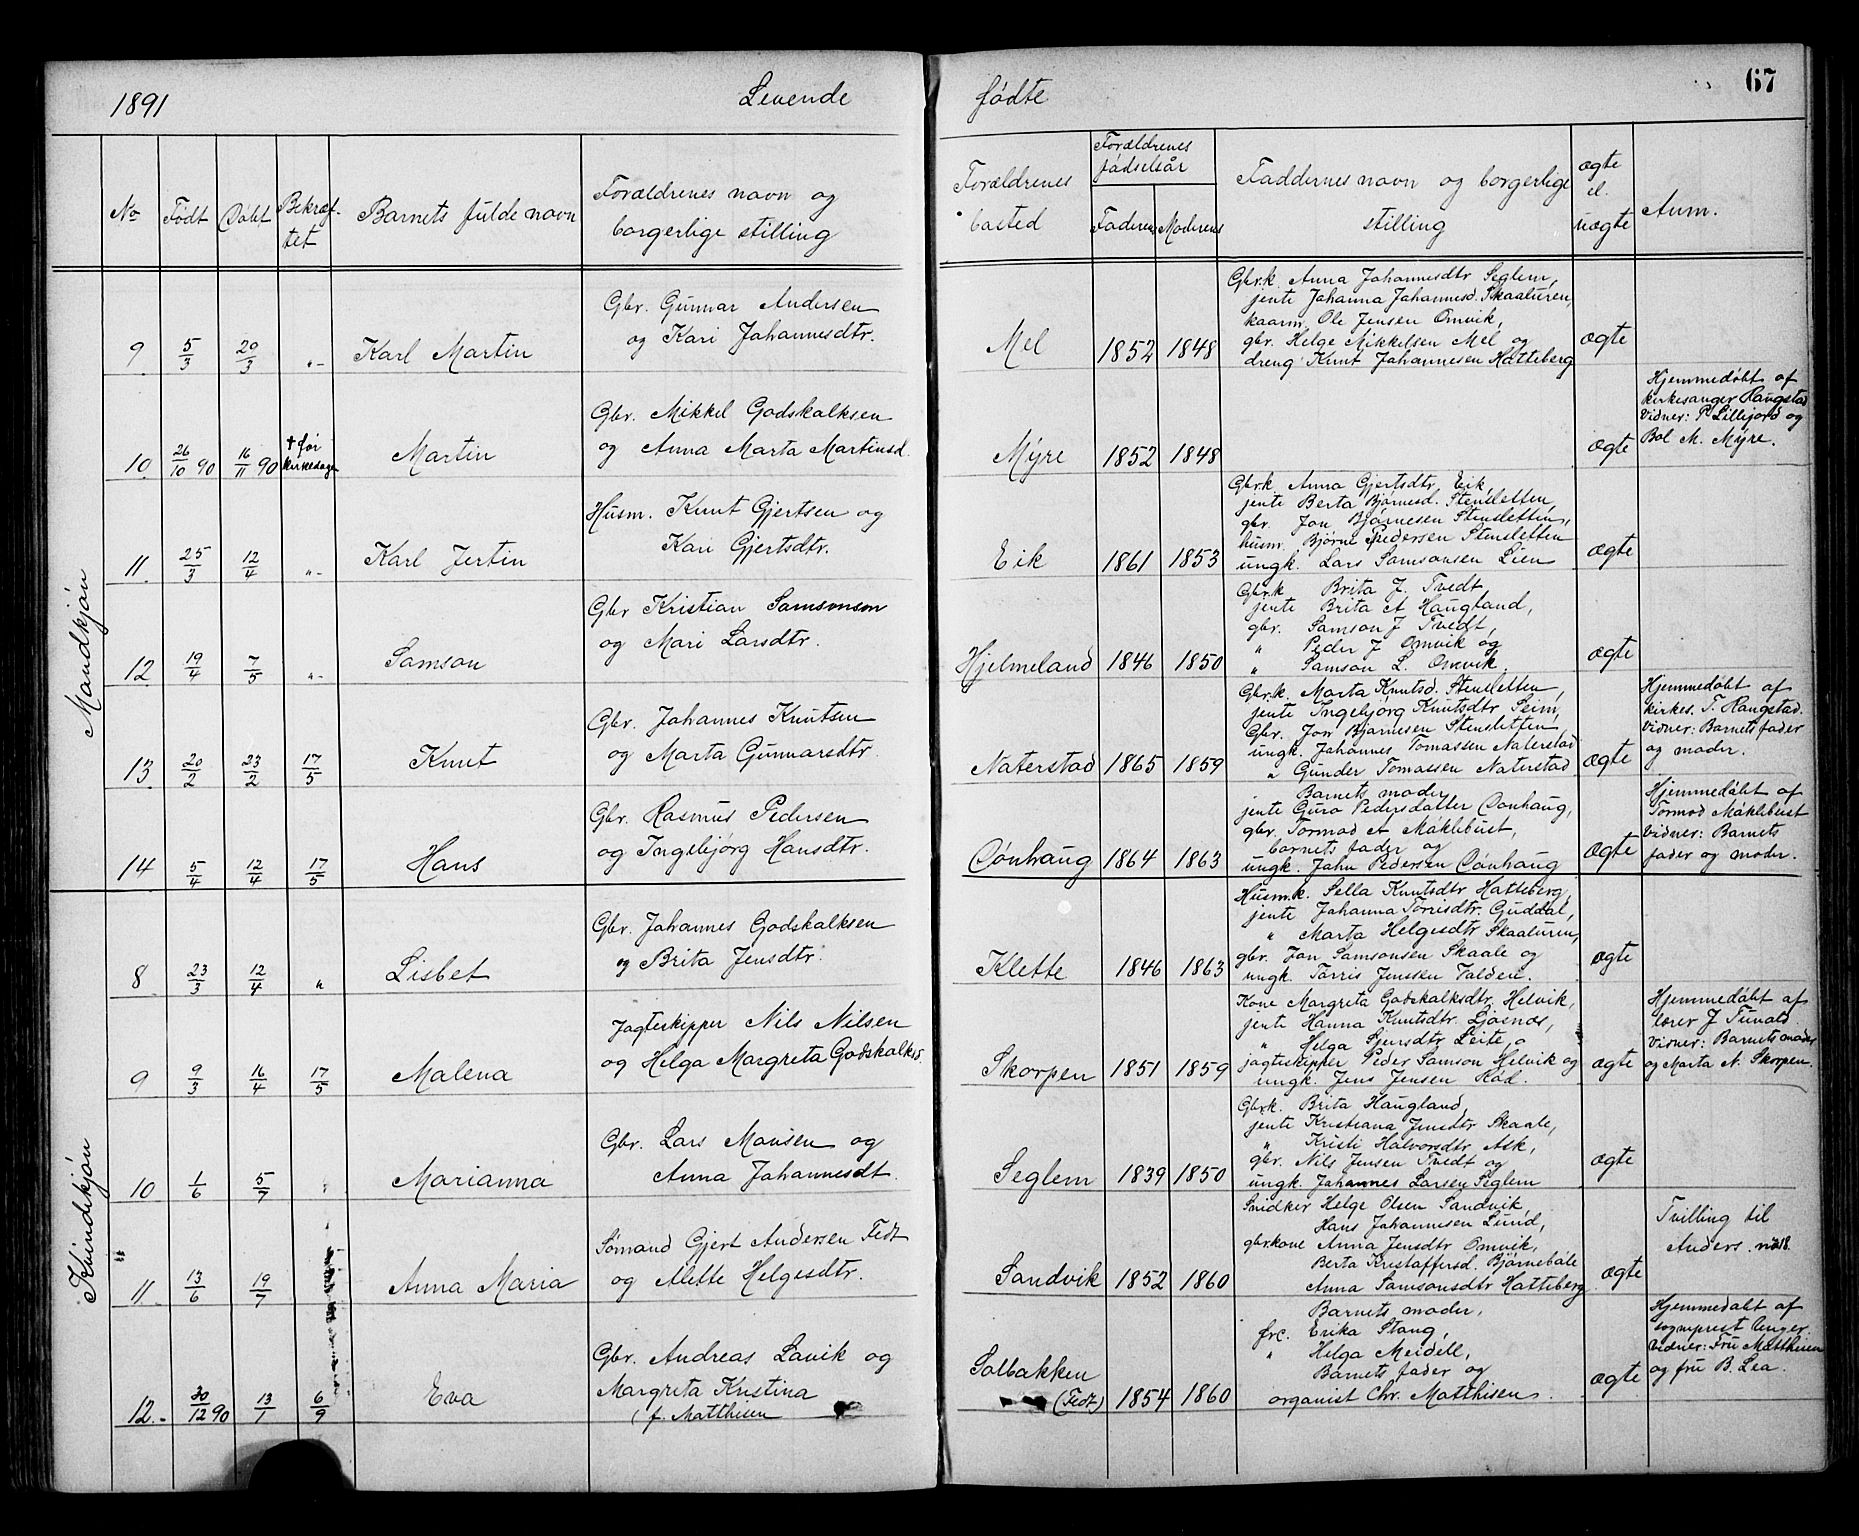 1891 Levende fødte 67
No Født Døbt Bekræf-tet Barnets fulde navn Forældrenes navn og borgerlige stilling Forældrenes bosted Forældrenes fødselsår Faderens Moderens Faddernes navn og borgerlige stilling ægte el. uægte Anm.
Mandkjøn
9 5/3 20/3 „- Karl Martin
Gbr. Gunnar Andersen
og Kari Johannesdtr.
Mel 1852 1848
Gbr.k. Anna Johannesdtr Seglem,
jente Johanna Johannesd. Skaaluren,
kaarm. Ole Jensen Omvik,
gbr. Helge Mikkelsen Mel og
dreng Knut Johannesen Hatteberg
ægte
10 26/10 90 16/11 90 † før kirkedage Martin
Gbr. Mikkel Godskalksen
og Anna Marta Martinsd.
Myre 1852 1848
ægte
Hjemmedøbt af
kirkesanger Haugstad
Vidner: P. Lillejord og
Bol M. Myre.
11 25/3 12/4 „- Karl Jertin
Husm. Knut Gjertsen og
Kari Gjertsdtr.
Eik 1861 1853
Gbr.k Anna Gjertsdtr Eik,
jente Berta Bjørnesd. Stensletten,
gbr. Jon Bjørnesen Stensletten,
husm. Bjørne Pedersen Stensletten
ungk. Lars Samsonsen Lien
ægte
12 19/4 7/5 „- Samson
Gbr Kristian Samsonson
og Mari Larsdtr.
Hjelmeland 1846 1850
Gbr.k Brita J. Tvedt
jente Brita A Haugland,
gbr. Samson J Tvedt,
„ Peder J Omvik og
„ Samson L. Omvik.
ægte
13 20/2 23/2 17/5 Knut
Gbr. Johannes Knutsen
og Marta Gunnarsdtr.
Naterstad 1865 1859
Gbr.k. Marta Knutsd. Stensletten,
jente Ingebjørg Knutsdtr Seim,
Gbr. Jon Bjørnesen Stensletten,
ungk. Johannes Tomassen Naterstad
„ Gunder Tomassen Naterstad
ægte
Hjemmedøbt af
kirkes. T. Haugstad.
Vidner: Barnets fader
og moder.
14 5/4 12/4 17/5 Hans
Gbr. Rasmus Pedersen
og Ingebjørg Hansdtr.
Dønhaug 1864 1863
Barnets moder
jente Guro Pedersdatter Dønhaug,
gbr. Tormod A Møklebust,
barnets fader og
ungk. John Pedersen Dønhaug
ægte
Hjemmedøbt af
Tormod Møklebust
Vidner: Barnets
fader og moder.
Kvindekjøn
8 23/3 12/4 „ Lisbet
Gbr. Johannes Godskalksen
og Brita Jensdtr.
Klette 1846 1863
Husm.k. Sella Knutsdtr Hatteberg,
jente Johanna Torrisdtr. Guddal,
„ Marta Helgesdtr Skaaluren,
gbr. Jon Samsonsen Skaale og
ungk. Torris Jensen Valden.
ægte
9 9/3 16/4 17/5 Malena
Jagteskipper Nils Nilsen
og Helga Margreta Godskalksd.
Skorpen 1851 1859
Kone Margreta Godskalksdtr. Helvik,
jente Hanna Knutsdtr Ljosnes,
„ Helga Sjursdtr Leite,
jagteskipper Peder Samson Helvik og
ungk. Jens Jensen Rød.
ægte
Hjemmedøbt af
lærer J Tunald
Vidner: Barnets moder
og Marta N. Skorpen.
10 1/6 5/7 Marianna
Gbr. Lars Monsen og
Anna Johannesdt.
Seglem 1839 1850
Gbr.k. Brita Haugland,
jente Kristiana Jensdtr Skaale,
„ Kristi Halvorsdtr Ask,
gbr. Nils Jensen Tvedt og
ungk. Johannes Larsen Seglem
ægte
11. 13/6 19/7 Anna Maria
Sømand Gjert Andersen Fedt
og Mette Helgesdtr.
Sandvik 1852 1860
Snidker Helge Olsen Sandvik,
Hans Johannesen Lund,
gbr.kone Anna Jensdtr Omvik,
Berta Kristaffersd. Bjørnebøle
Anna Samsonsdtr Hatteberg
ægte
Tvilling til
Anders no 18.
12. 30/12 90 13/1 6/9 Eva
Gbr. Andreas Lavik og
Margreta Kristina
(f. Matthisen
Solbakken
(Fedt) 1854 1860
Barnets moder,
frk. Erika Stang,
„ Helga Meidell,
Barnets fader og
organist Chr. Matthisen.
ægte
Hjemmedøbt af
sogneprest Unger.
Vidner: Fru Matthisen
og fru B. Lea.